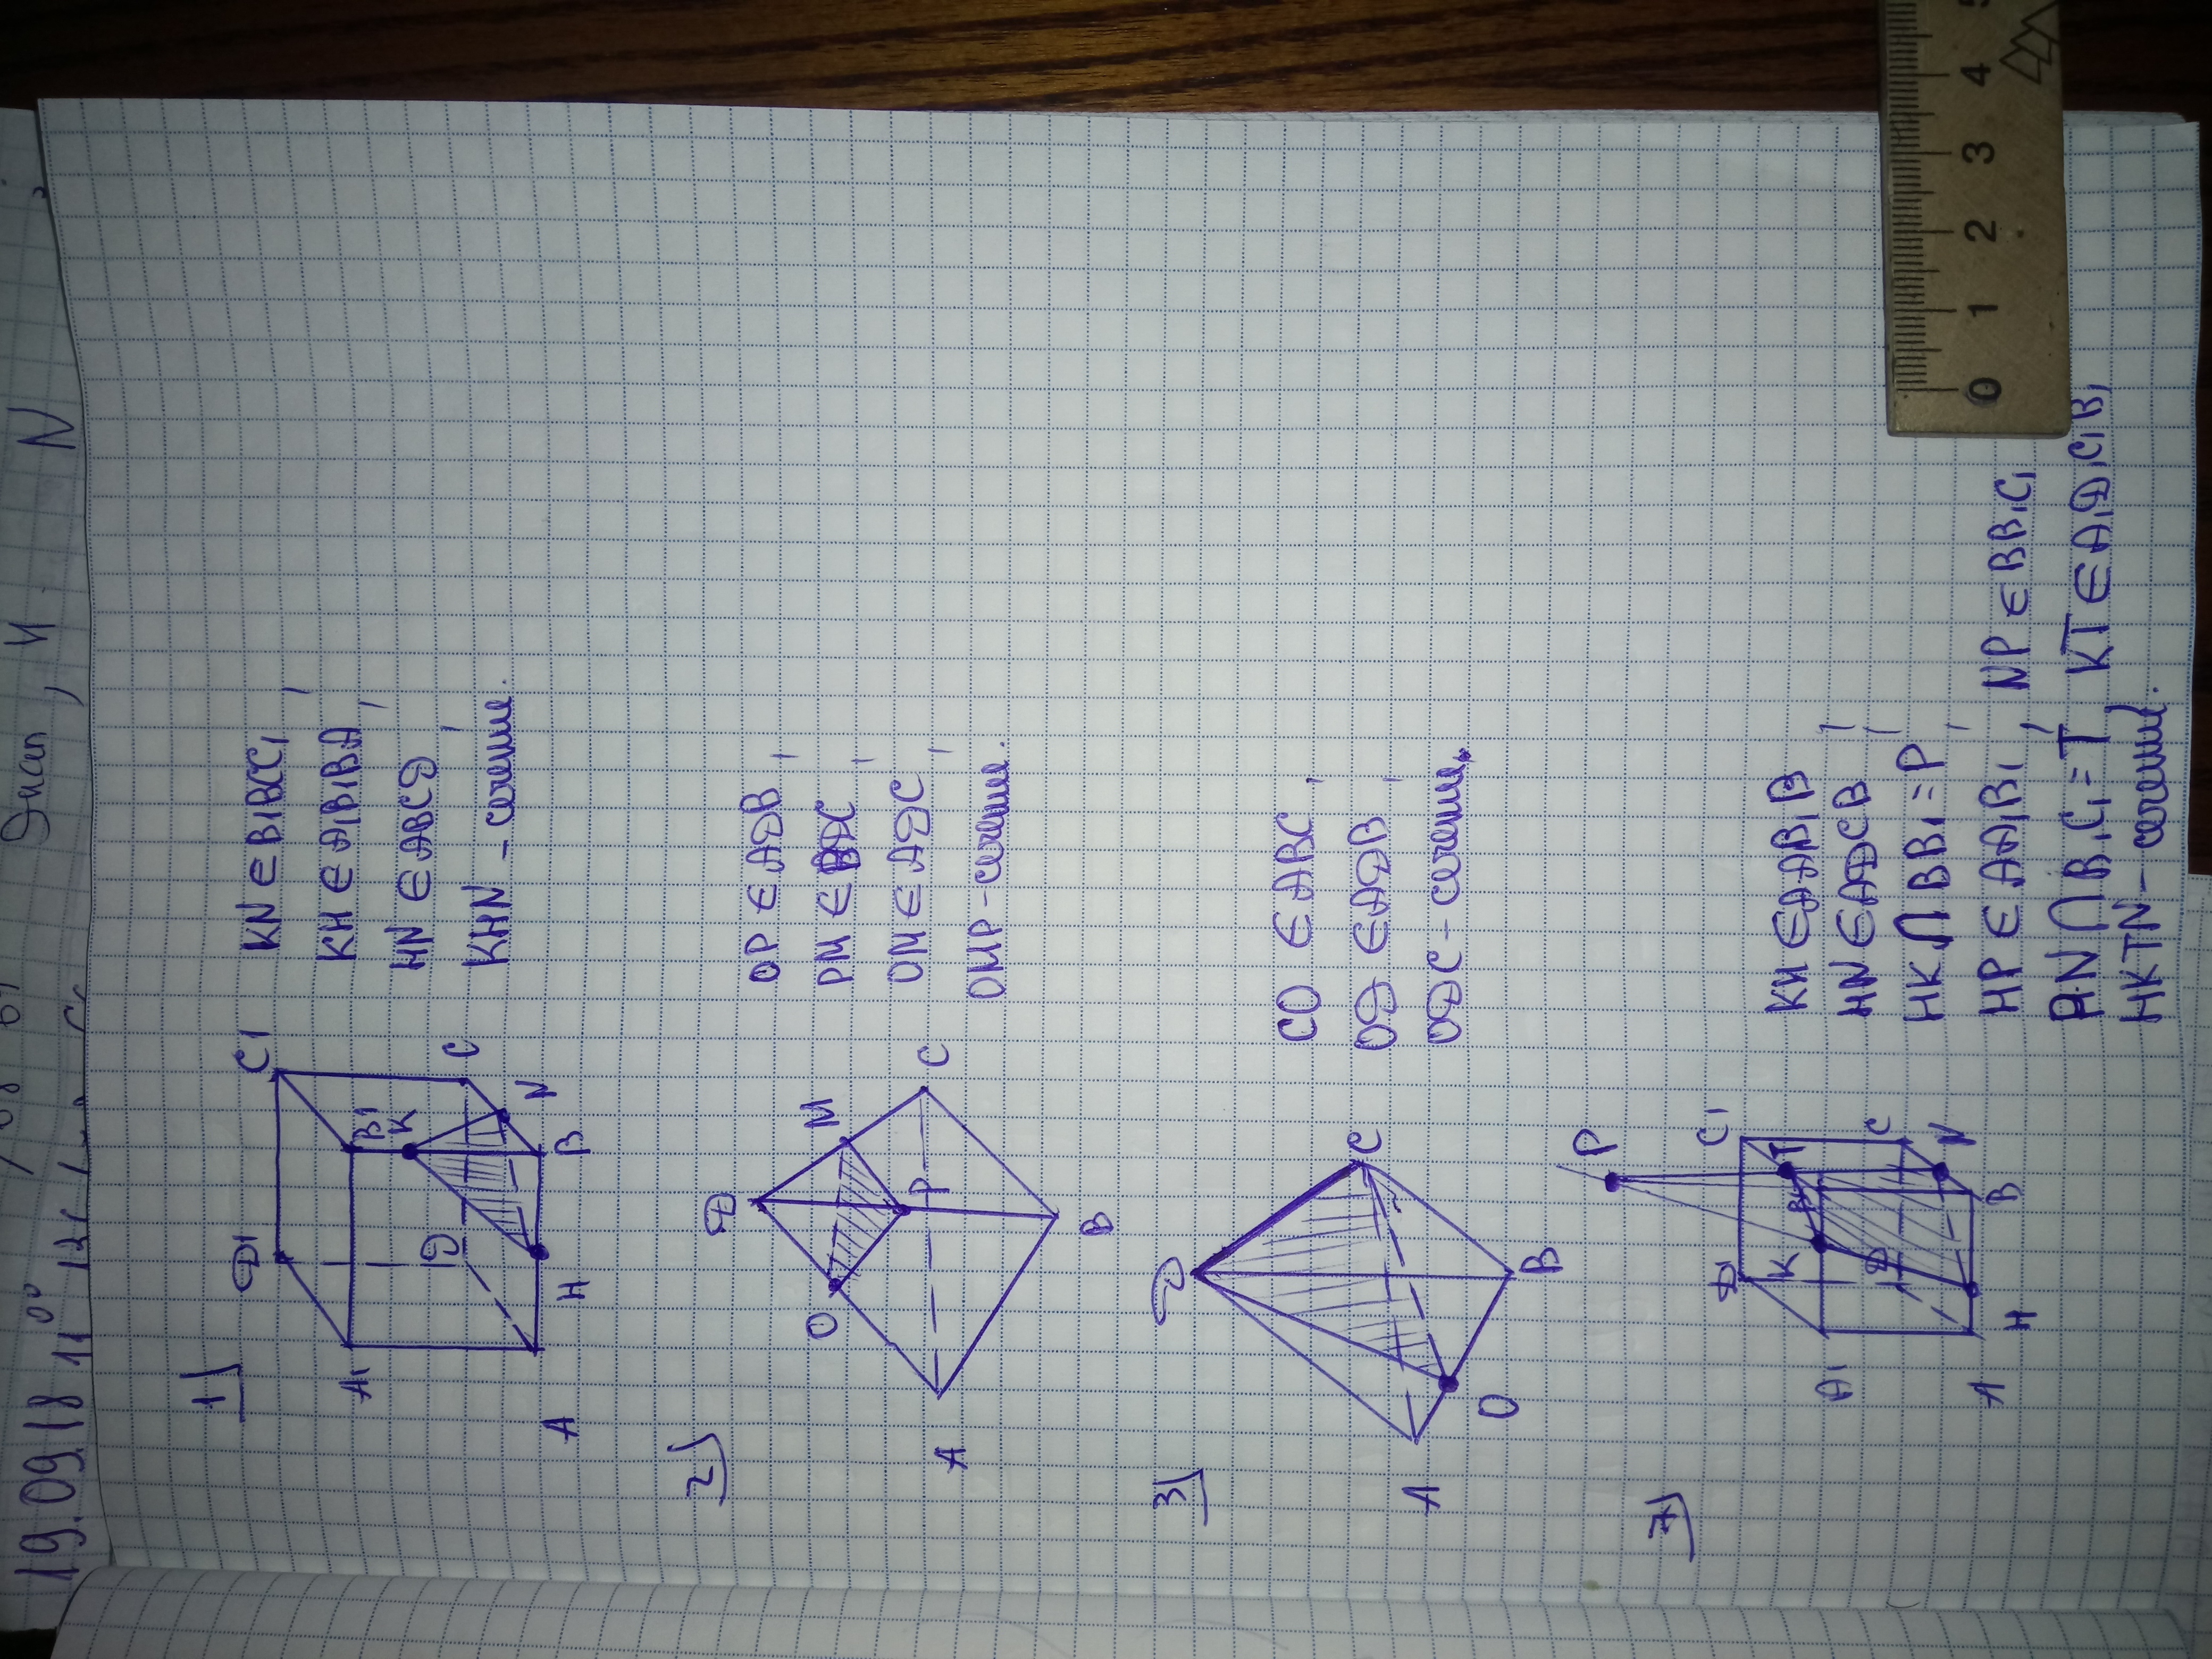 19.09.18 11⁰⁰
N
1)
D1
C1
A1
B1
K
D
C
N
A
H
B
KN ∈ B1BCC1,
KH ∈ A1B1BA,
HN ∈ ABCD,
KHN - сечение.
2)
D
O
M
P
A
C
B
OP ∈ ADB,
PM ∈ BDC,
OM ∈ ADC,
OMP - сечение.
3)
D
C
A
O
B
CO ∈ ABC,
OD ∈ ADB,
ODC - сечение.
7)
P
D1
C1
K
T
A1
B1
D
C
N
A
H
B
KH ∈ AA1B1B,
HN ∈ ADCB,
HK ∩ BB1 = P,
HP ∈ AA1B1, NP ∈ BB1C1
PN ∩ B1C1 = T KT ∈ A1D1C1B1
HKTN - сечение.
0 1 2 3 4 5